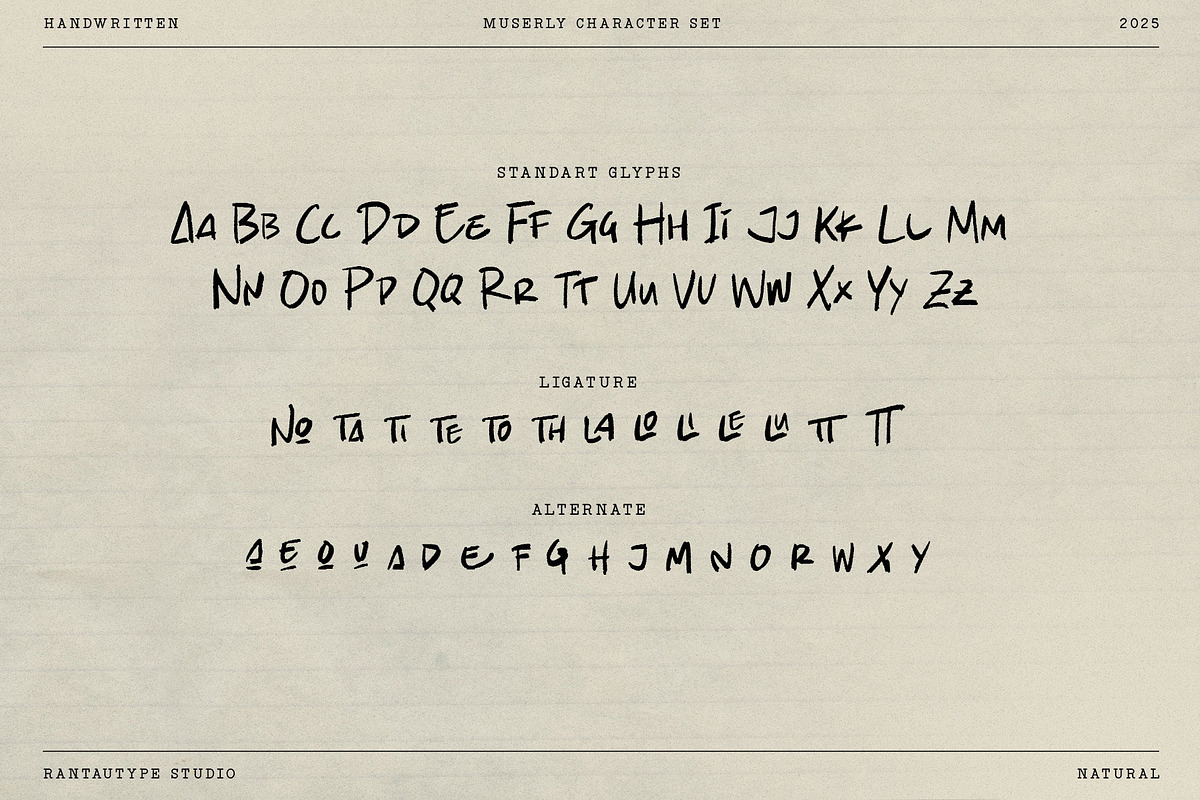 HANDWRITTEN MUSERLY CHARACTER SET 2025
STANDART GLYPHS
Aa Bb Cc Dd Ee Ff Gg Hh Ii Jj Kk Ll Mm
Nn Oo Pp Qq Rr Tt Uu Vv Ww Xx Yy Zz
LIGATURE
No TA TI TE TO TH LA LO LI LE LU TT TT
ALTERNATE
A E O U A D E F G H J M N O R W X Y
RANTAUTYPE STUDIO NATURAL